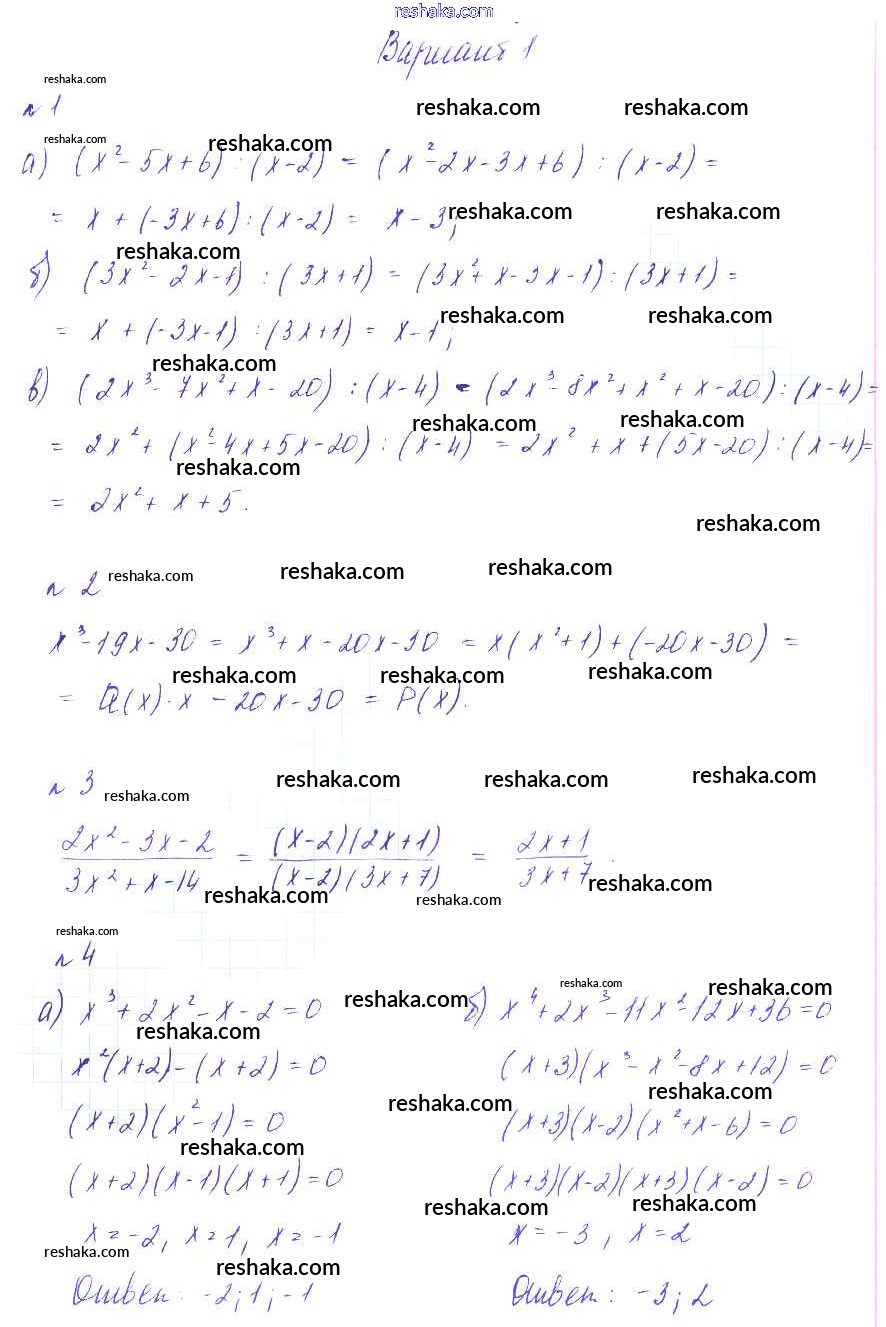 reshaka.com
Вариант 1
reshaka.com
n 1 reshaka.com reshaka.com
reshaka.com reshaka.com
а) (x² - 5x + 6) : (x - 2) = (x² - 2x - 3x + 6) : (x - 2) =
= x + (-3x + 6) : (x - 2) = x - 3; reshaka.com reshaka.com
reshaka.com
б) (3x² - 2x - 1) : (3x + 1) = (3x² + x - 3x - 1) : (3x + 1) =
reshaka.com reshaka.com
= x + (-3x - 1) : (3x + 1) = x - 1;
reshaka.com
в) (2x³ - 7x² + x - 20) : (x - 4) = (2x³ - 8x² + x² + x - 20) : (x - 4) =
reshaka.com reshaka.com
= 2x² + (x² - 4x + 5x - 20) : (x - 4) = 2x² + x + (5x - 20) : (x - 4) =
reshaka.com
= 2x² + x + 5.
reshaka.com
n 2 reshaka.com reshaka.com reshaka.com
x³ - 19x - 30 = x³ + x - 20x - 30 = x(x² + 1) + (-20x - 30) =
reshaka.com reshaka.com reshaka.com
= Q(x) · x - 20x - 30 = P(x).
n 3 reshaka.com reshaka.com reshaka.com reshaka.com
2x² - 3x - 2 / 3x² + x - 14 = (x - 2)(2x + 1) / (x - 2)(3x + 7) = 2x + 1 / 3x + 7.
reshaka.com reshaka.com reshaka.com
reshaka.com
n 4
reshaka.com
а) x³ + 2x² - x - 2 = 0 reshaka.com б) x⁴ + 2x³ - 11x² - 12x + 36 = 0 reshaka.com
reshaka.com
x²(x + 2) - (x + 2) = 0 (x + 3)(x³ - x² - 8x + 12) = 0
reshaka.com reshaka.com
(x + 2)(x² - 1) = 0 (x + 3)(x - 2)(x² + x - 6) = 0
reshaka.com
(x + 2)(x - 1)(x + 1) = 0 (x + 3)(x - 2)(x + 3)(x - 2) = 0
reshaka.com reshaka.com
x = -2, x = 1, x = -1 x = -3, x = 2
reshaka.com reshaka.com
Ответ: -2; 1; -1 Ответ: -3; 2